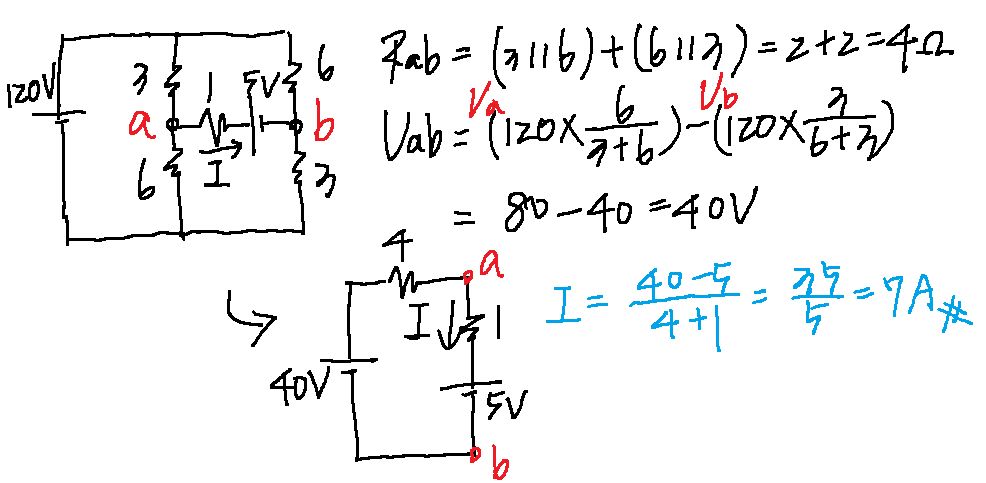 120V 3 1 5V 6
a b
6 I 3
Rab = (3116) + (6113) = 2+2 = 4Ω
Va Vb
Vab = (120 × 6/(3+6)) - (120 × 3/(6+3))
= 80 - 40 = 40V
4 a
I 1
40V 5V
b
I = (40-5)/(4+1) = 35/5 = 7A #